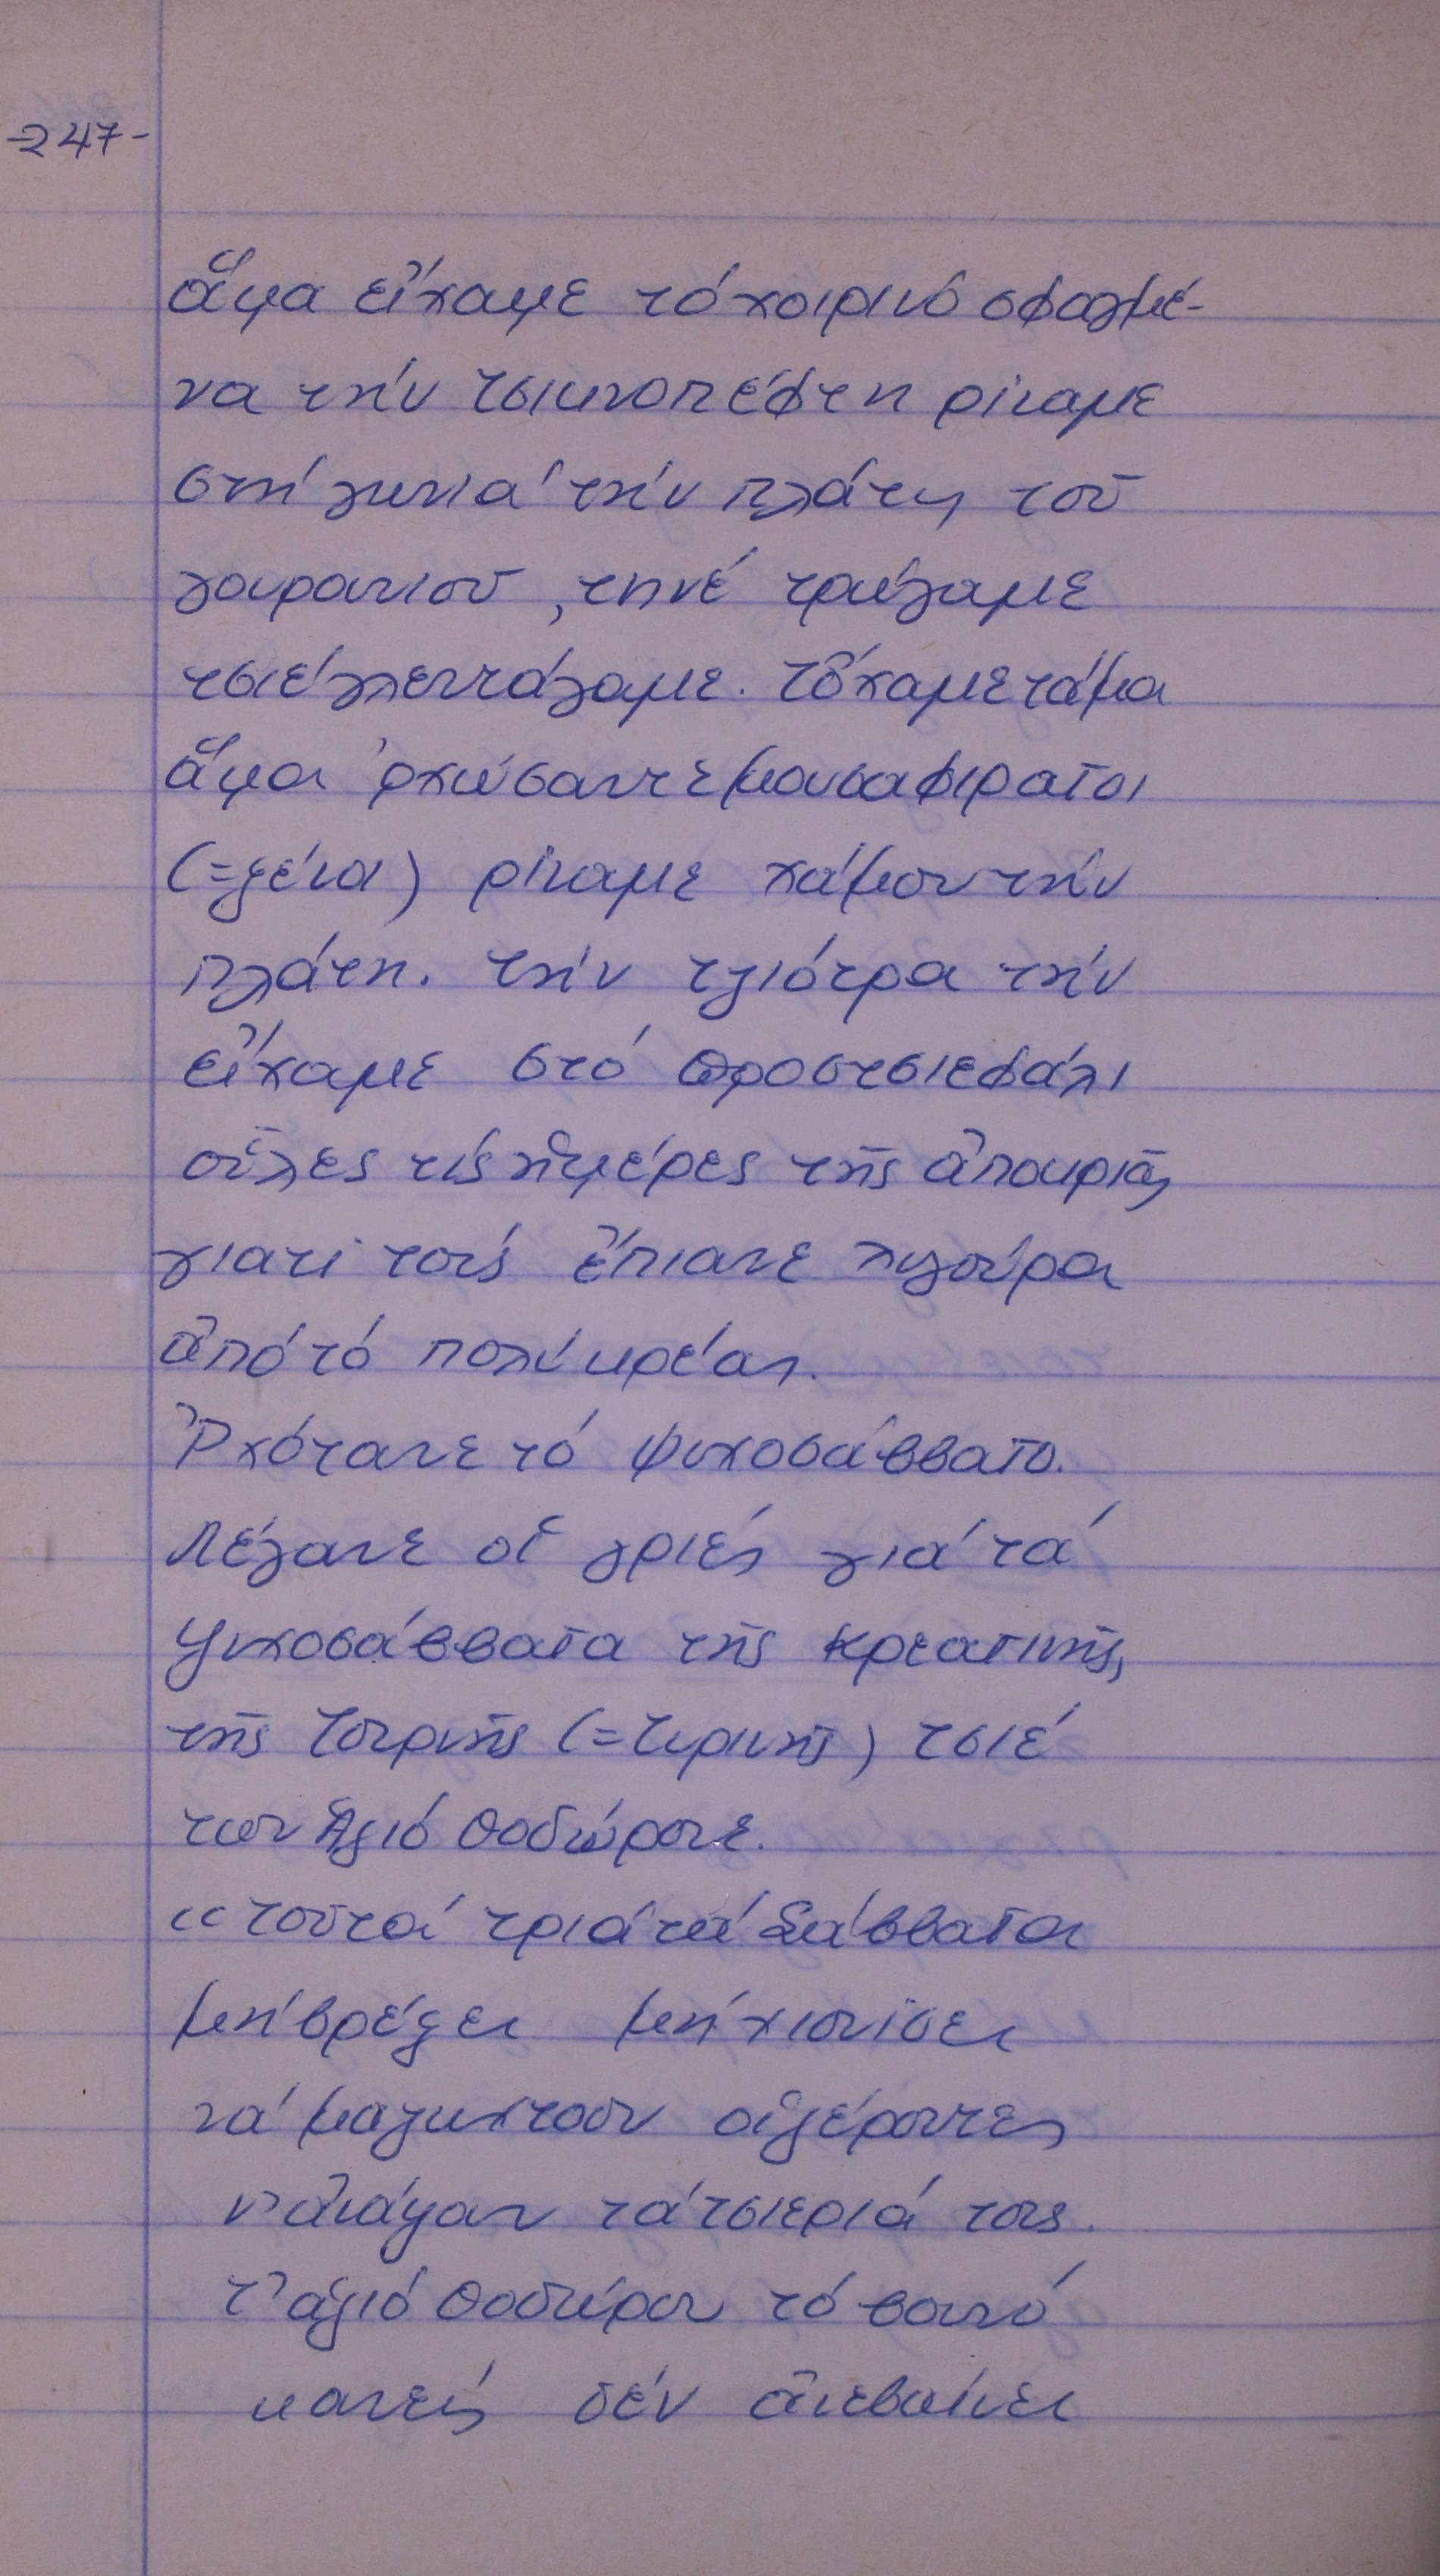 -247-
ἅμα εἴχαμε τό χοιρινό σφαγμέ-
να τήν τσικνοπέφτη ρίκαμε
στή γωνιά τήν πλάτη τοῦ
γουρουνιοῦ, τηνέ τρώγαμε
τσιέ γλεντάγαμε. Τὄχαμε τάμα
ἅμα ᾿ρχώσαντε μουσαφιραῖοι
(=ξένοι) ρίκαμε χάμου τήν
πλάτη. τήν τζιότρα τήν
εἴχαμε στό προστσιεφάλι
οὗλες τίς ἡμέρες τῆς ἀποκριᾶς
γιατί τούς ἔπιανε λιγούρα
ἀπό τό πολύ κρέας.
Ἐρχότανε τό ψυχοσάββατο.
Λέγανε οἱ γριές γιά τά
ψυχοσάββατα τῆς κρεατινῆς,
τῆς τσυρνῆς (=τυρινῆς) τσιέ
των Ἁγιό Θοδώρονε.
«τοῦτα τρία τά Σάββατα
μή βρέξει μή χιονίσει
νά μαζωχτοῦν οἱ γέροντες
ν᾿ ἀνάψουν τά τσιεριά τους.
τ᾿ ἁγιό Θοδώρου τό βουνό
κανείς δέν ἀνεβαίνει